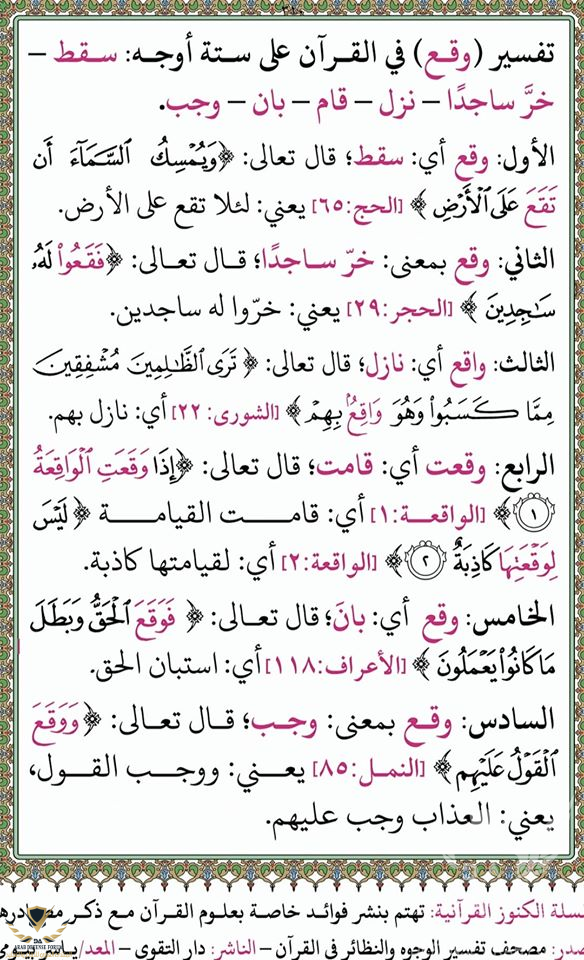 تفسير (وقـع) في القـرآن على ستة أوجـه: سـقط –
خرَّ ساجدًا – نزل – قام – بان – وجب.
الأول: وقع أي: سقط؛ قال تعالى: ﴿وَيُمْسِكُ السَّمَآءَ أَن
تَقَعَ عَلَى ٱلْأَرْضِ﴾ [الحج:٦٥] يعني: لئلا تقع على الأرض.
الثاني: وقع بمعنى: خرّ سـاجدًا؛ قـال تعـالى: ﴿فَقَعُوا۟ لَهُۥ
سَٰجِدِينَ﴾ [الحجر:٢٩] يعني: خرّوا له ساجدين.
الثالث: واقع أي: نازل؛ قال تعالى: ﴿تَرَى ٱلظَّٰلِمِينَ مُشْفِقِينَ
مِمَّا كَسَبُوا۟ وَهُوَ وَاقِعٌۢ بِهِمْ﴾ [الشورى: ٢٢] أي: نازل بهم.
الرابع: وقعت أي: قامت؛ قال تعالى: ﴿إِذَا وَقَعَتِ ٱلْوَاقِعَةُ
١﴾ [الواقعـة:١] أي: قامـت القيامـة ﴿لَيْسَ
لِوَقْعَتِهَا كَاذِبَةٌ ٢﴾ [الواقعة:٢] أي: لقيامتها كاذبة.
الخامس: وقع أي: بانَ؛ قال تعـالى: ﴿فَوَقَعَ ٱلْحَقُّ وَبَطَلَ
مَا كَانُوا۟ يَعْمَلُونَ﴾ [الأعراف:١١٨] أي: استبان الحق.
السادس: وقـع بمعنى: وجـب؛ قـال تعـالى: ﴿وَوَقَعَ
ٱلْقَوْلُ عَلَيْهِم﴾ [النمل:٨٥] يعـني: ووجـب القول،
يعني: العذاب وجب عليهم.
سلة الكنوز القرآنية: تهتم بنشر فوائد خاصة بعلوم القرآن مع ذكر مصادرها
صدر: مصحف تفسير الوجوه والنظائر في القرآن – الناشر: دار التقوى – المعد/
ARAB DEFENSE FORUM